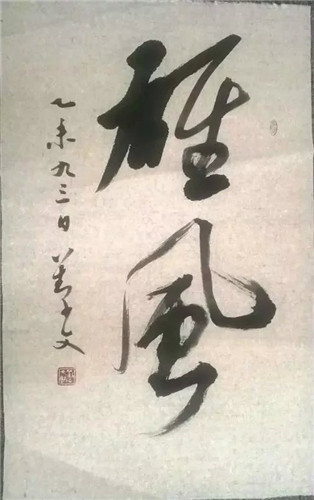 雄風
乙未九三日